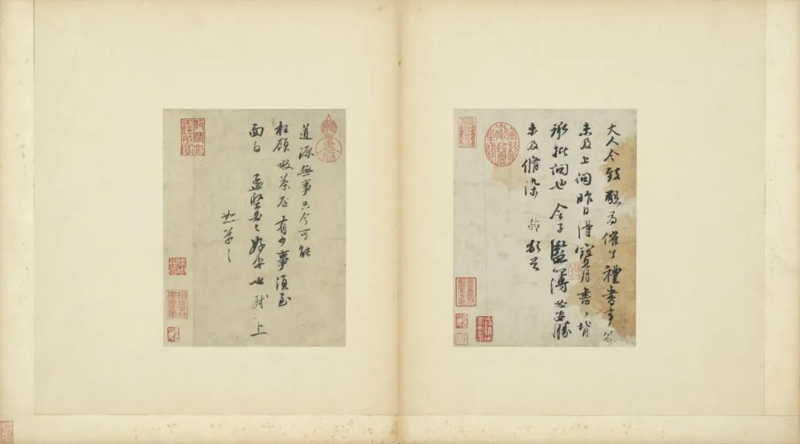 大人令致懇為催了禮書事冗
未及上問昨日得寶月書書背
承批問也令子監簿必安勝
未及脩染軾頓首
道源無事只今可能
枉顧啜茶否有少事須至
面白孟堅必已好安也軾上
恕草草